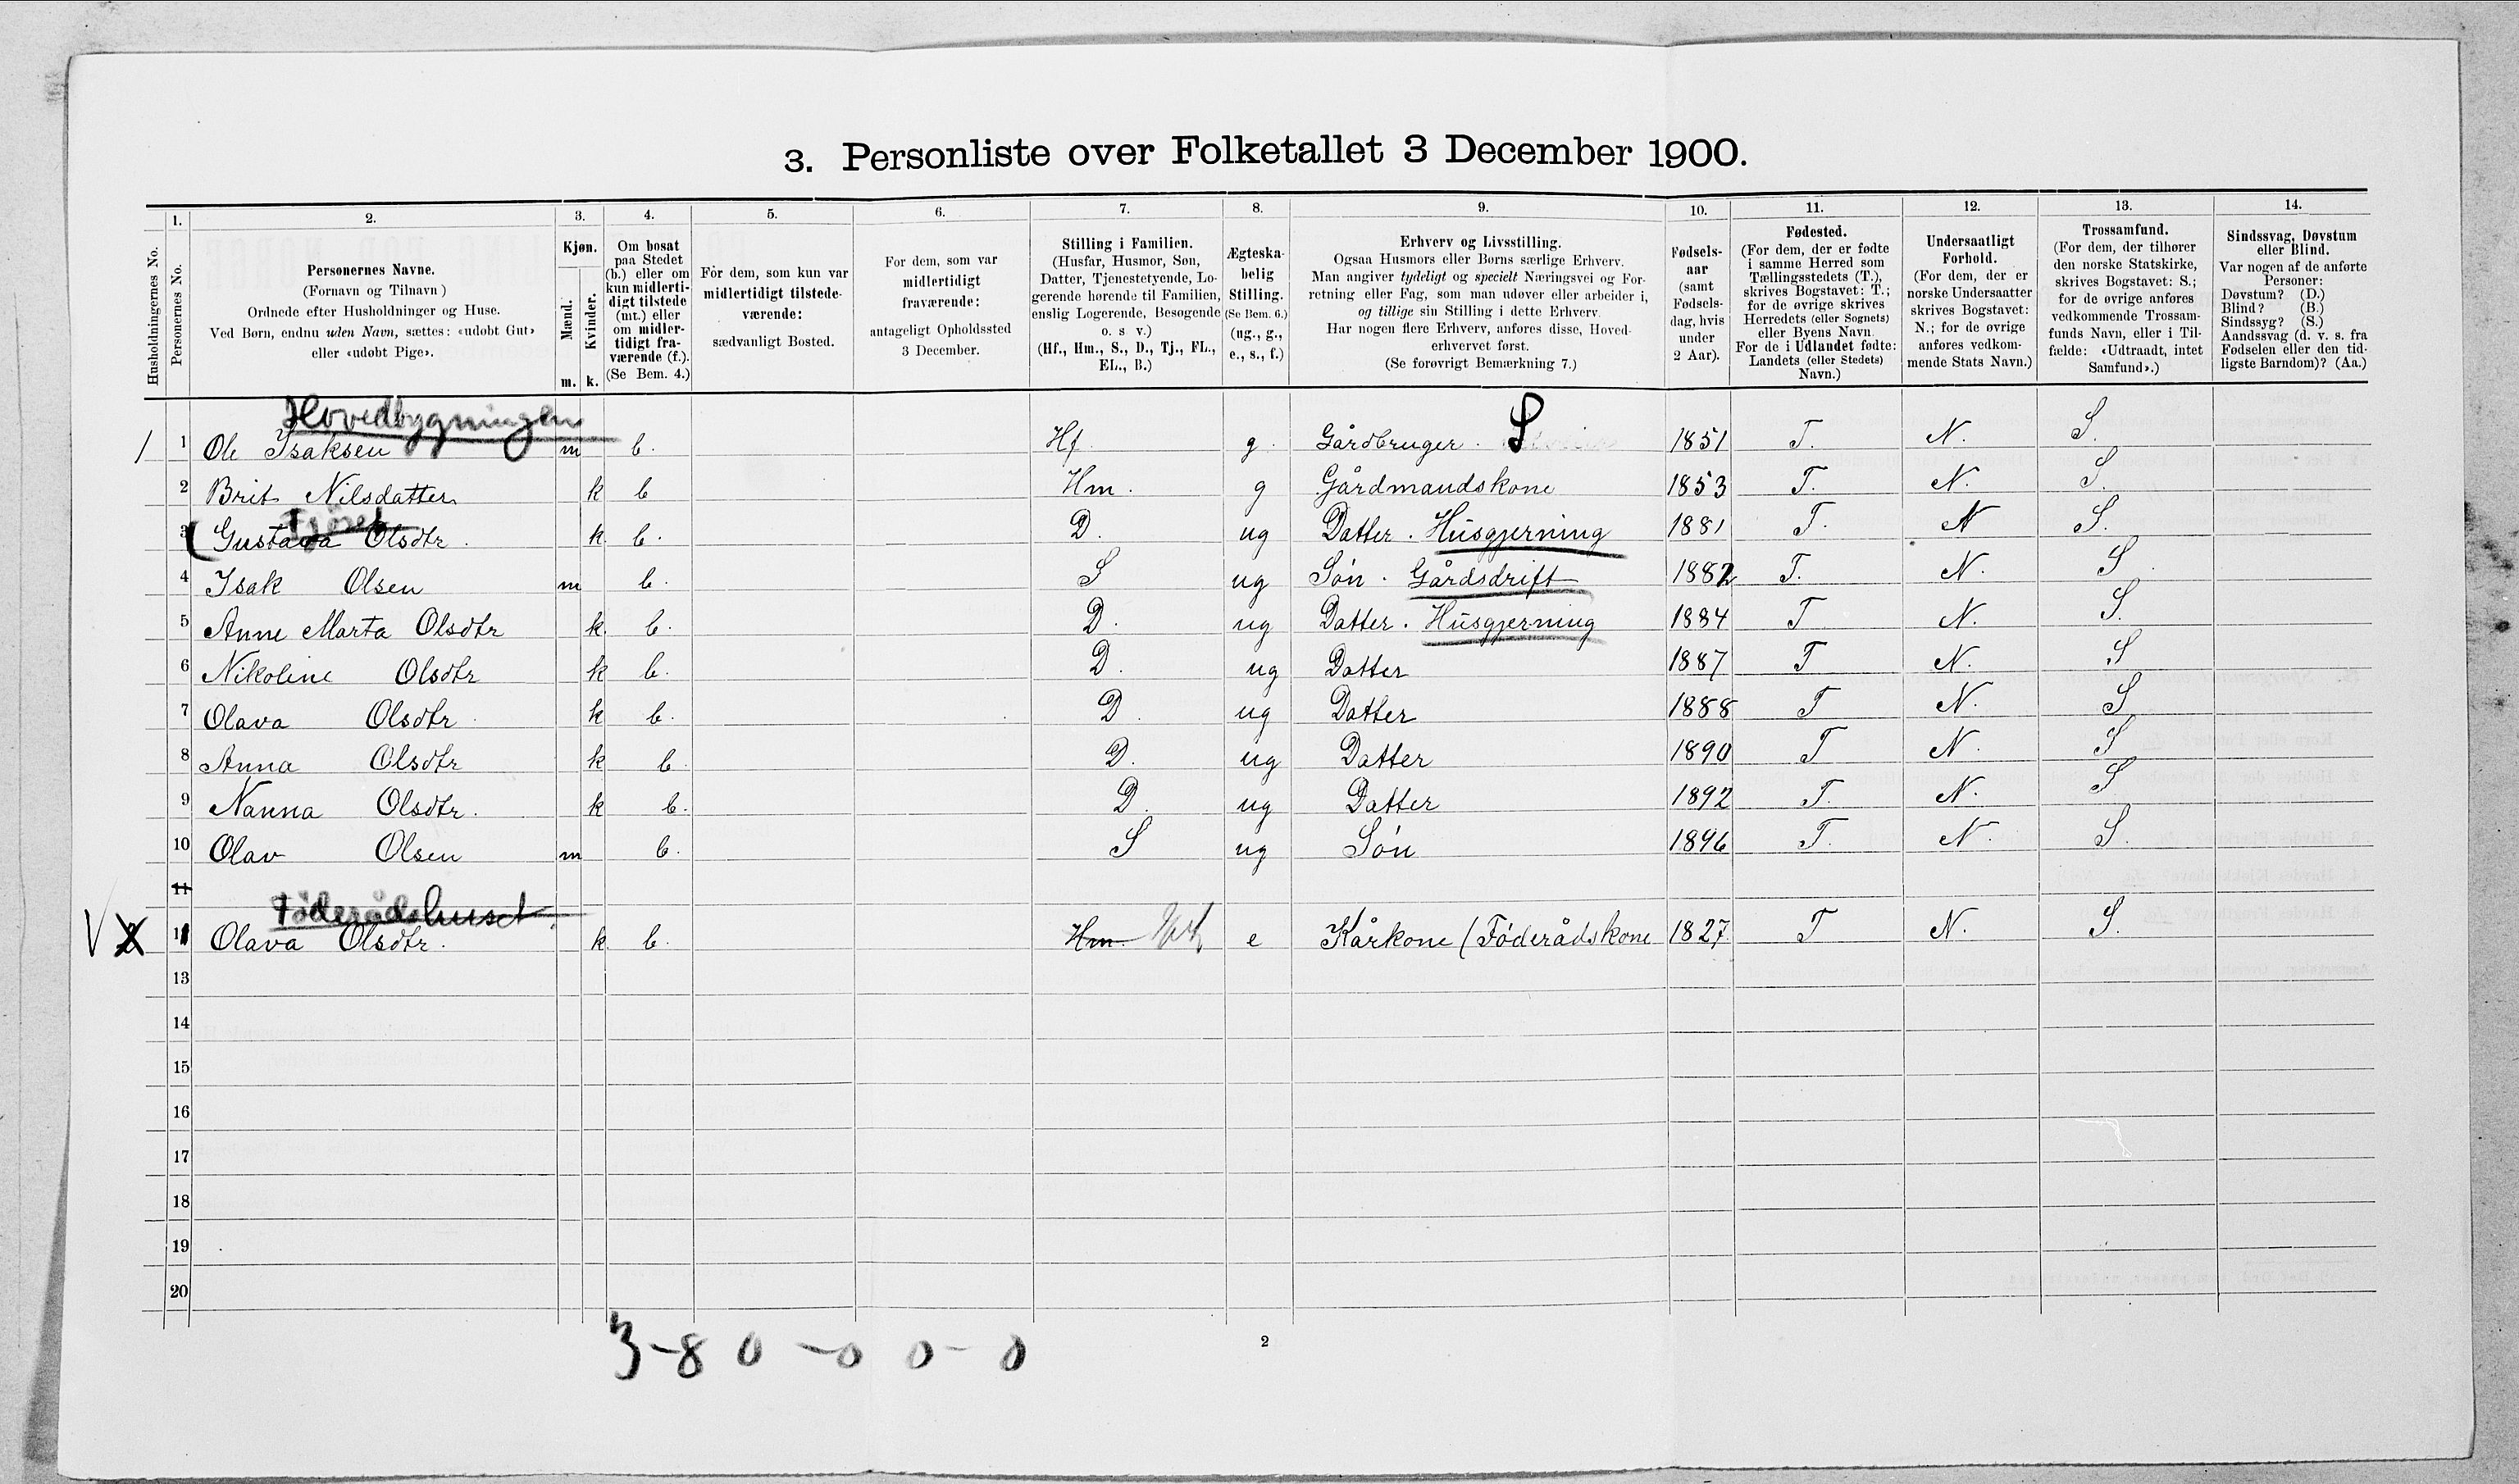 3. Personliste over Folketallet 3 December 1900.
1. 2. 3. 4. 5. 6. 7. 8. 9. 10. 11. 12. 13. 14.
Husholdningernes No.
Personernes No.
Personernes Navne.
(Fornavn og Tilnavn)
Ordnede efter Husholdninger og Huse.
Ved Børn, endnu uden Navn, sættes: «udøbt Gut»
eller «udøbt Pige».
Kjøn.
Mænd.
Kvinder.
m. k.
Om bosat
paa Stedet
(b.) eller om
kun midlerti-
digt tilstede
(mt.) eller
om midler-
tidigt fra-
værende (f.).
(Se Bem. 4.)
For dem, som kun var
midlertidigt tilstede-
værende:
sædvanligt Bosted.
For dem, som var
midlertidigt
fraværende:
antageligt Opholdssted
3 December.
Stilling i Familien.
(Husfar, Husmor, Søn,
Datter, Tjenestetyende, Lo-
gerende hørende til Familien,
enslig Logerende, Besøgende
o. s v.)
(Hf., Hm., S., D., Tj., FL.,
EL., B.)
Ægteska-
belig
Stilling.
(Se Bem. 6.)
(ug., g.,
e., s., f.)
Erhverv og Livsstilling.
Ogsaa Husmors eller Børns særlige Erhverv.
Man angiver tydeligt og specielt Næringsvei og For-
retning eller Fag, som man udøver eller arbeider i,
og tillige sin Stilling i dette Erhverv.
Har nogen flere Erhverv, anføres disse, Hoved-
erhvervet først.
(Se forøvrigt Bemærkning 7.)
Fødsels-
aar
(samt
Fødsels-
dag, hvis
under
2 Aar).
Fødested.
(For dem, der er fødte
i samme Herred som
Tællingsstedets (T.),
skrives Bogstavet: T.;
for de øvrige skrives
Herredets (eller Sognets)
eller Byens Navn.
For de i Udlandet fødte:
Landets (eller Stedets)
Navn.)
Undersaatligt
Forhold.
(For dem, der er
norske Undersaatter
skrives Bogstavet:
N.; for de øvrige
anføres vedkom-
mende Stats Navn.)
Trossamfund.
(For dem, der tilhører
den norske Statskirke,
skrives Bogstavet: S.;
for de øvrige anføres
vedkommende Trossam-
funds Navn, eller i Til-
fælde: «Udtraadt, intet
Samfund».)
Sindssvag, Døvstum
eller Blind.
Var nogen af de anførte
Personer:
Døvstum? (D.)
Blind? (B.)
Sindssyg? (S.)
Aandssvag (d. v. s. fra
Fødselen eller den tid-
ligste Barndom)? (Aa.)
Hovedbygningen
/ 1 Ole Isaksen m b. Hf. g. Gårdbruger. S 1851 T. N. S.
2 Brit Nilsdatter k b Hm. g Gårdmandskone 1853 T. N. S.
3 Gustava Olsdtr. k. b. D. ug Datter. Husgjerning 1881 T. N S.
4 Isak Olsen m b. S ug Søn. Gårdsdrift 1882 T. N. S
5 Anne Marta Olsdtr k. b. D. ug Datter. Husgjerning 1884 T N. S.
6 Nikoline Olsdtr k b. D. ug Datter 1887 T N. S
7 Olava Olsdtr. k b. D. ug Datter 1888 T N. S
8 Anna Olsdtr k b D. ug Datter 1890 T N. S
9 Nanna Olsdtr. k b. D. ug Datter 1892 T. N. S
10 Olav Olsen m b. S ug Søn 1896 T. N. S.
11
Föderådshuset
Olava Olsdtr. k b. Hm e Kårkone (Föderådskone 1827 T N. S.
13
14
15
16
17
18
19
20
3-8 0-0 0-0
2